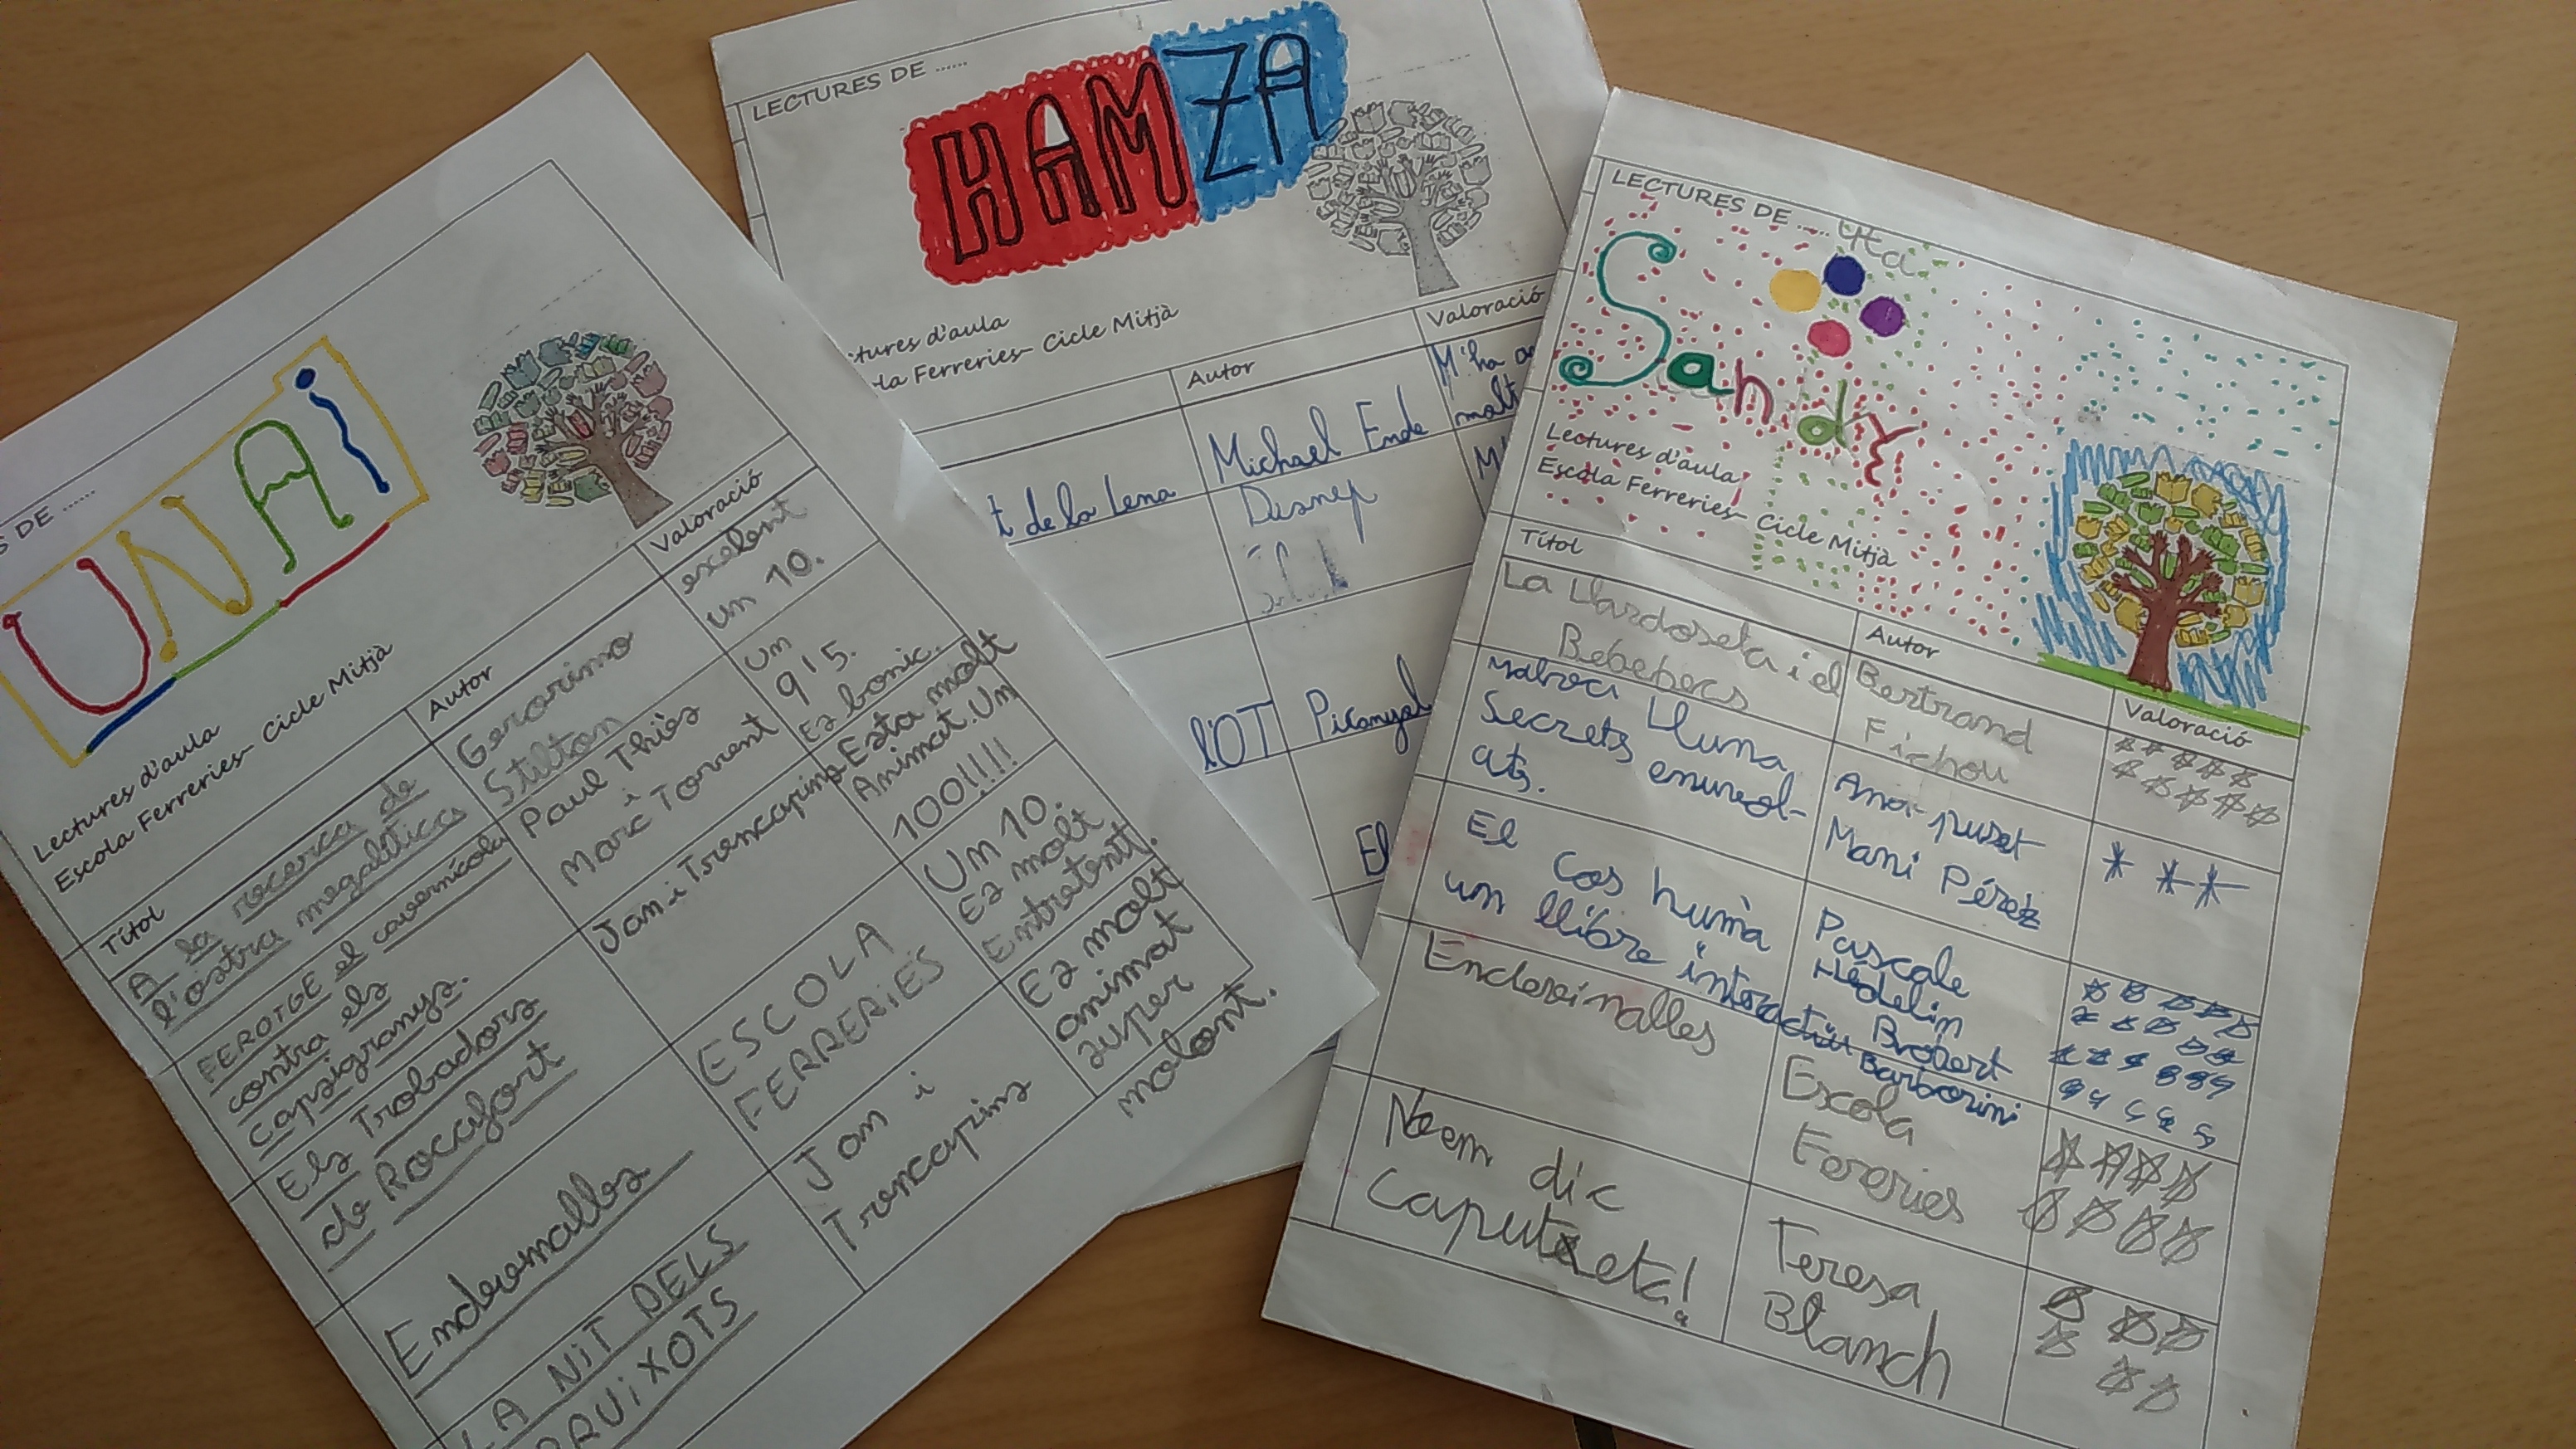 S DE ......
UNAI
Lectures d'aula
Escola Ferreries- Cicle Mitjà
Títol
Autor
Valoració
A la recerca de
l'ostra megalítica
Geronimo
Stilton
excelent
un 10.
FEROTGE el cavernícola
contra els
capsigranys.
Paul Thiès
i
Marc Torrent
um
9'5.
Es bonic.
Els Trobadors
de Rocafort
Jan i Trencapins
Esta molt
Animat. Un
100!!!!
Endevinalles
ESCOLA
FERRERIES
Um 10.
Es molt
Entretent.
LA NiT DELS
BRUiXOTS
Jan i
Trencapins
Es molt
animat
super
molont.
LECTURES DE ......
HAMZA
tures d'aula
la Ferreries- Cicle Mitjà
Autor
Valoració
t de la Lena
Michael Ende
M'ha
molt
Disney
l'OT
Picanyol
El
LECTURES DE ......
Sandy
Lectures d'aula
Escola Ferreries- Cicle Mitjà
Títol
Autor
Valoració
La Llardoseta i el
Bebebecs
Bertrand
Fichou
Lluna
Secrets enunvol-
ats.
Anna puset
Mani Pérez
El cos humà
un llibre interactiu
Pascale
Hédelin
Robert
Barborini
Endevinalles
Escola
Fereries
No em dic
Caputxeta!
Teresa
Blanch